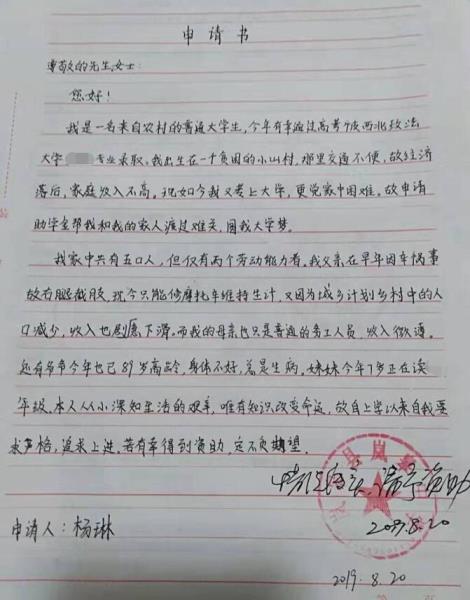 申请书
尊敬的先生、女士:
您好!
我是一名来自农村的普通大学生,今年有幸通过高考被西北政法
大学 专业录取。我出生在一个贫困的小山村,那里交通不便,故经济
落后,家庭收入不高。现如今我又考上大学,更觉家中困难。故申请
助学金帮我和我的家人渡过难关,圆我大学梦。
我家中共有五口人,但仅有两个劳动能力者。我父亲在早年因车祸事
故右腿截肢,现今只能修摩托车维持生计,又因为城乡计划乡村中的人
口减少,收入也愈下滑。而我的母亲也只是普通的务工人员,收入微薄。
还有爷爷今年也已89岁高龄,身体不好,总是生病。妹妹今年7岁正在读
年级。本人从小深知生活的艰辛,唯有知识改变命运,故自上学以来自我要
求严格,追求上进。若有幸得到资助,定不负期望。
情况属实,请予资助
2019.8.20
申请人:杨琳
2019.8.20